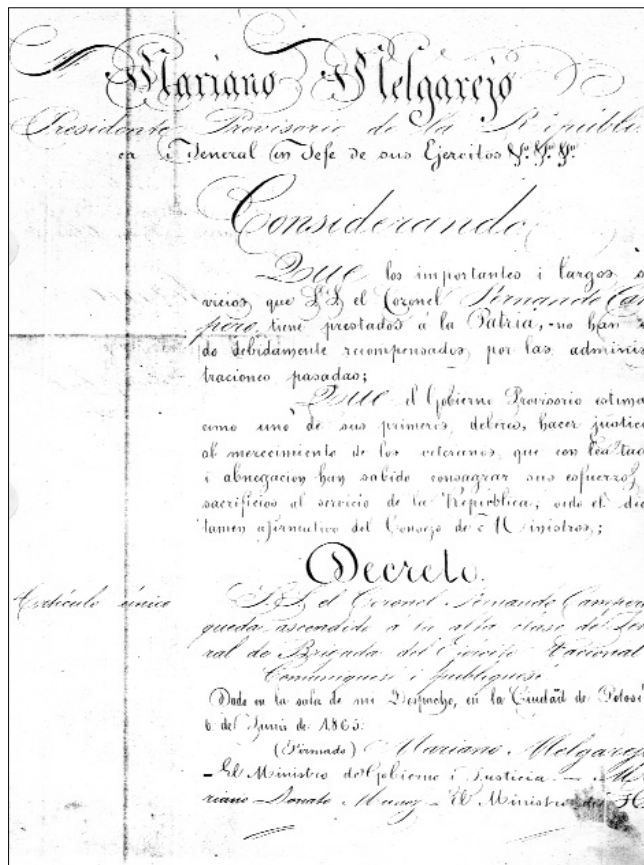 Mariano Melgarejo
Presidente Provisorio de la Repúbli
ca i Jeneral en Jefe de sus Ejercitos &a. &a. &a.
Considerando
Que los importantes i largos s
vicios que S.S. el Coronel Fernando Cam
pero, tiene prestados á la Patria, no han s
do debidamente recompensados, por las adminis
traciones pasadas;
Que el Gobierno Provisorio estima
como uno de sus primeros deberes, hacer justic
al merecimiento de los veteranos, que con leatad
i abnegacion han sabido consagrar sus esfuerzos
sacrificios al servicio de la República; oido el dic
tamen afirmativo del Consejo de Ministros;
Decreto.
Articulo único S.S. el Coronel Fernando Campero
queda ascendido a la alta clase de Jene
ral de Brigada del Ejercito Nacional
Comuniquese i publiquese
Dado en la sala de mi Despacho, en la Ciudad de Potosí
6 de Junio de 1865.
(Firmado) Mariano Melgarejo
- El Ministro de Gobierno i Justicia. - Ma
riano Donato Muñoz - El Ministro de H